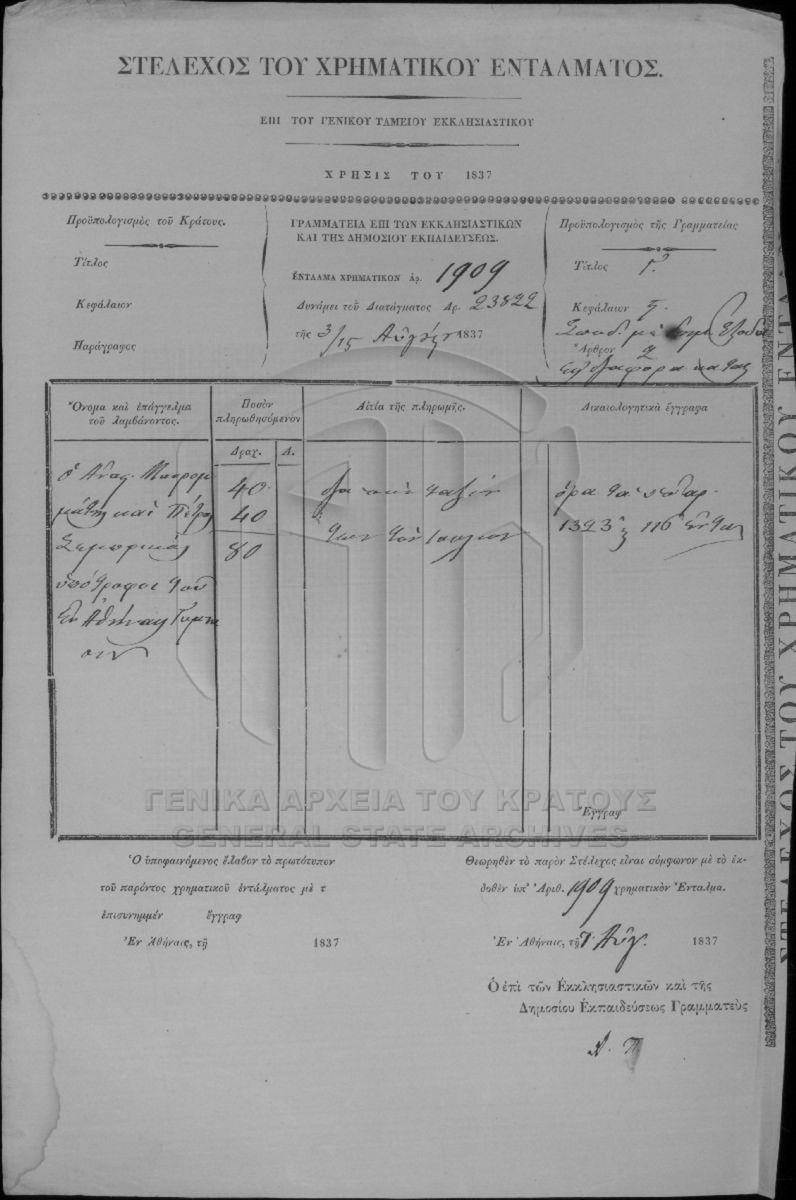 ΣΤΕΛΕΧΟΣ ΤΟΥ ΧΡΗΜΑΤΙΚΟΥ ΕΝΤΑΛΜΑΤΟΣ.
ΕΠΙ ΤΟΥ ΓΕΝΙΚΟΥ ΤΑΜΕΙΟΥ ΕΚΚΛΗΣΙΑΣΤΙΚΟΥ
ΧΡΗΣΙΣ ΤΟΥ 1837
Προϋπολογισμὸς τοῦ Κράτους.
Τίτλος
Κεφάλαιον
Παράγραφος
ΓΡΑΜΜΑΤΕΙΑ ΕΠΙ ΤΩΝ ΕΚΚΛΗΣΙΑΣΤΙΚΩΝ
ΚΑΙ ΤΗΣ ΔΗΜΟΣΙΟΥ ΕΚΠΑΙΔΕΥΣΕΩΣ.
ΕΝΤΑΛΜΑ ΧΡΗΜΑΤΙΚΟΝ ἀρ. 1909
Δυνάμει τοῦ Διατάγματος Ἀρ. 23822
τῆς 3/15 Αὐγούστου 1837
Προϋπολογισμὸς τῆς Γραμματείας
Τίτλος Γ.
Κεφάλαιον 5.
Ἄρθρον 2
Ὄνομα καὶ ἐπάγγελμα
τοῦ λαμβάνοντος.
Ποσὸν
πληρωθησόμενον
Δραχ. Λ.
Αἰτία τῆς πληρωμῆς.
Δικαιολογητικὰ ἔγγραφα
ὁ Ἀναγ. Μαυρομ
μάτης καὶ Πέτρος
ὑπότροφοι τοῦ
ἐν Ἀθήναις Γυμνα
σίου
40
40
80
τὸν Ἰούλιον
ὅρα τὰ
1323 116
Ἔγγραφ
Ὁ ὑποφαινόμενος ἔλαβον τὸ πρωτότυπον
τοῦ παρόντος χρηματικοῦ ἐντάλματος μὲ τ
ἐπισυνημμέν ἔγγραφ
Ἐν Ἀθήναις, τῇ 1837
Θεωρηθὲν τὸ παρὸν Στέλεχος εἶναι σύμφωνον μὲ τὸ ἐκ-
δοθὲν ὑπ' Ἀριθ. 1909 χρηματικὸν Ἔνταλμα.
Ἐν Ἀθήναις, τῇ 7 Αὐγ. 1837
Ὁ ἐπὶ τῶν Ἐκκλησιαστικῶν καὶ τῆς
Δημοσίου Ἐκπαιδεύσεως Γραμματεὺς
ΓΕΝΙΚΑ ΑΡΧΕΙΑ ΤΟΥ ΚΡΑΤΟΥΣ
GENERAL STATE ARCHIVES
ΣΤΕΛΕΧΟΣ ΤΟΥ ΧΡΗΜΑΤΙΚΟΥ ΕΝΤΑ